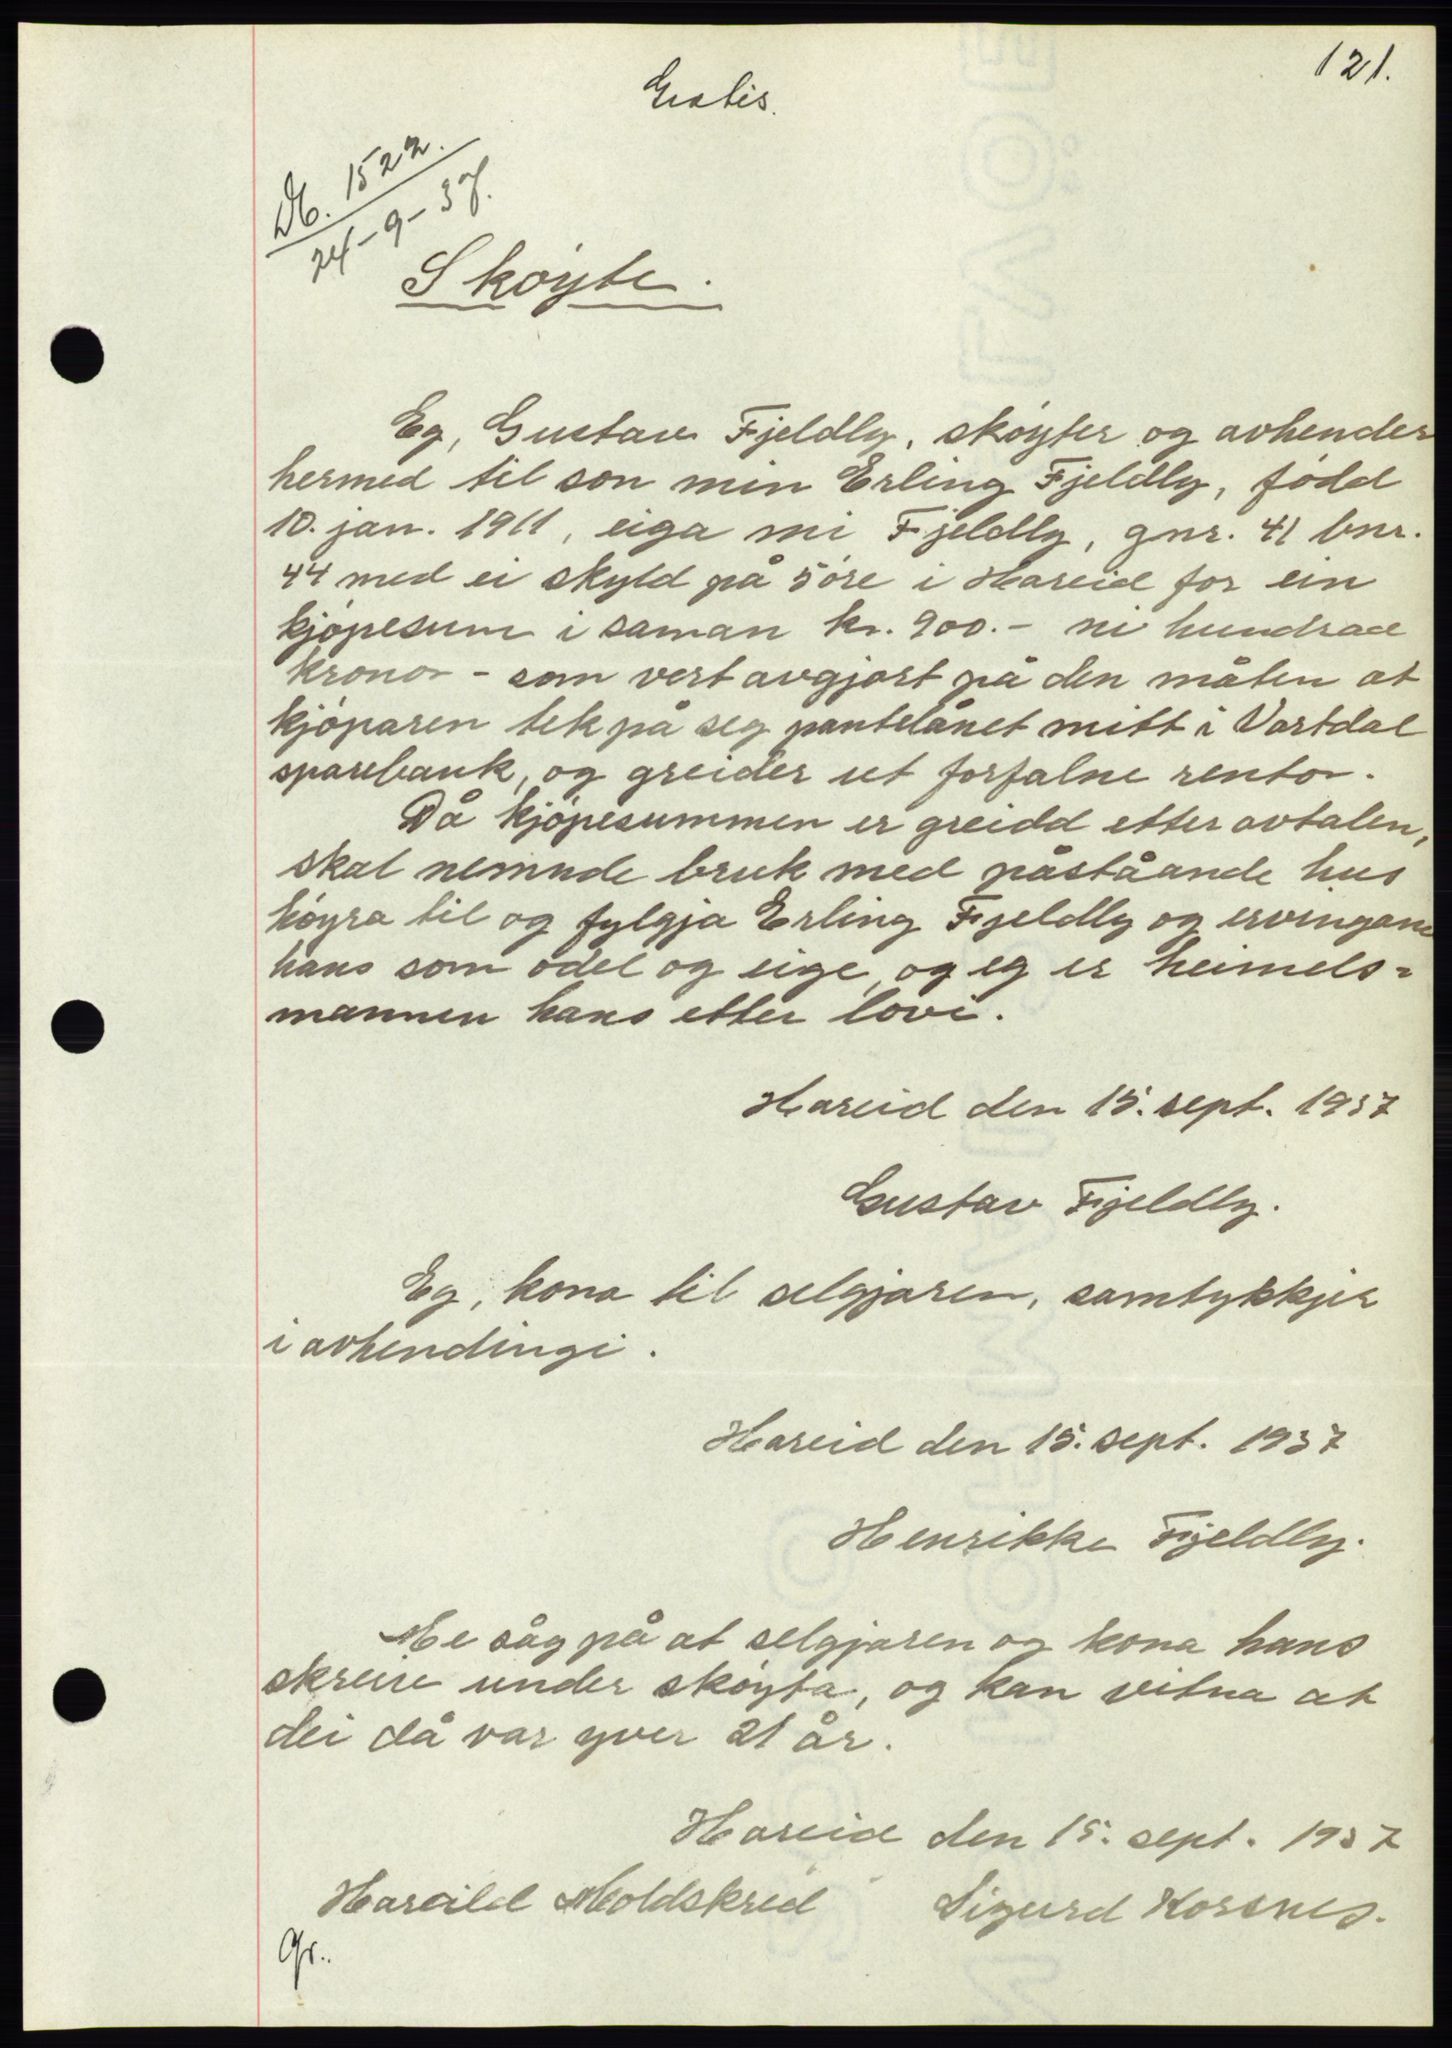 121.
Gratis.
Db. 1522.
24-9-37.
Skøyte.
Eg, Gustav Fjeldly, skøyter og avhender
hermed til son min Erling Fjeldly, fødd
10. jan. 1911, eiga mi Fjeldly, gnr. 41 bnr.
44 med ei skyld på 5 øre i Hareid for ein
kjøpesum i saman kr. 900.- ni hundrad
kronor - som vert avgjort på den måten at
kjøparen tek på seg pantelånet mitt i Vartdal
sparebank, og greider ut forfalne rentor.
Då kjøpesummen er greidd etter avtalen,
skal nemnde bruk med påståande hus
høyra til og fylgja Erling Fjeldly og ervingane
hans som odel og eige, og eg er heimels=
mannen hans etter lovi.
Hareid den 15. sept. 1937
Gustav Fjeldly.
Eg, kona til selgjaren, samtykkjer
i avhendingi.
Hareid den 15. sept. 1937
Henrikke Fjeldly.
Me såg på at selgjaren og kona hans
skreiv under skøyta, og kan vitna at
dei då var yver 21 år.
Hareid den 15. sept. 1937
Harald Moldskred Sigurd Korsnes.
Gr..